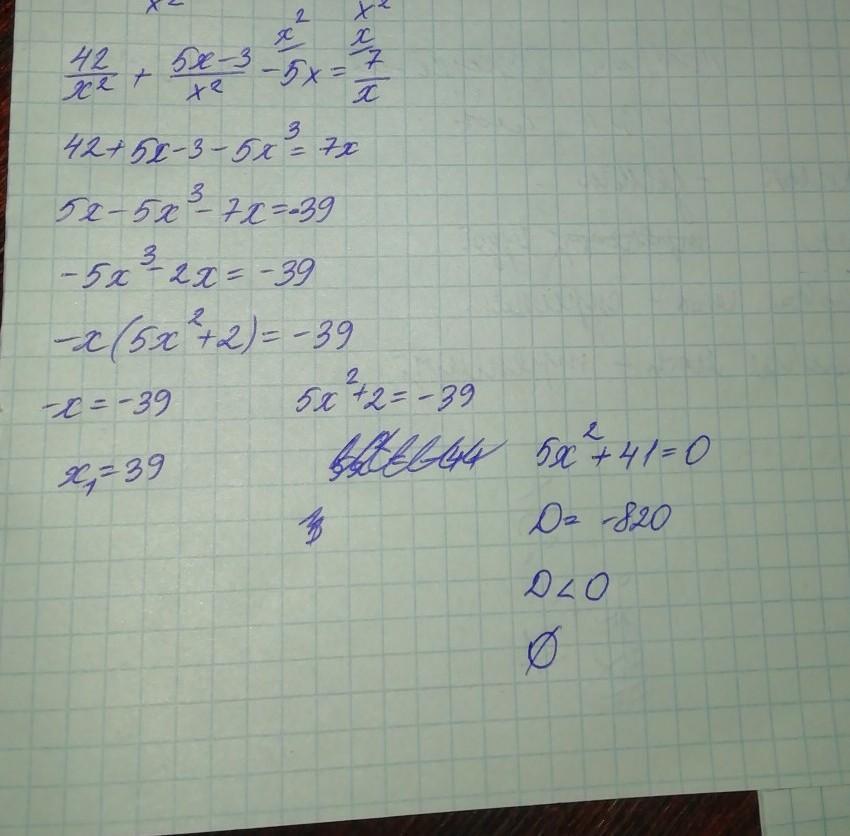 x² x²
42/x² + (5x-3)/x² - 5x (x²) = 7/x (x)
42+5x-3-5x³=7x
5x-5x³-7x=-39
-5x³-2x=-39
-x(5x²+2)=-39
-x=-39 5x²+2=-39
x₁=39 5x²+41=0
D=-820
D<0
∅